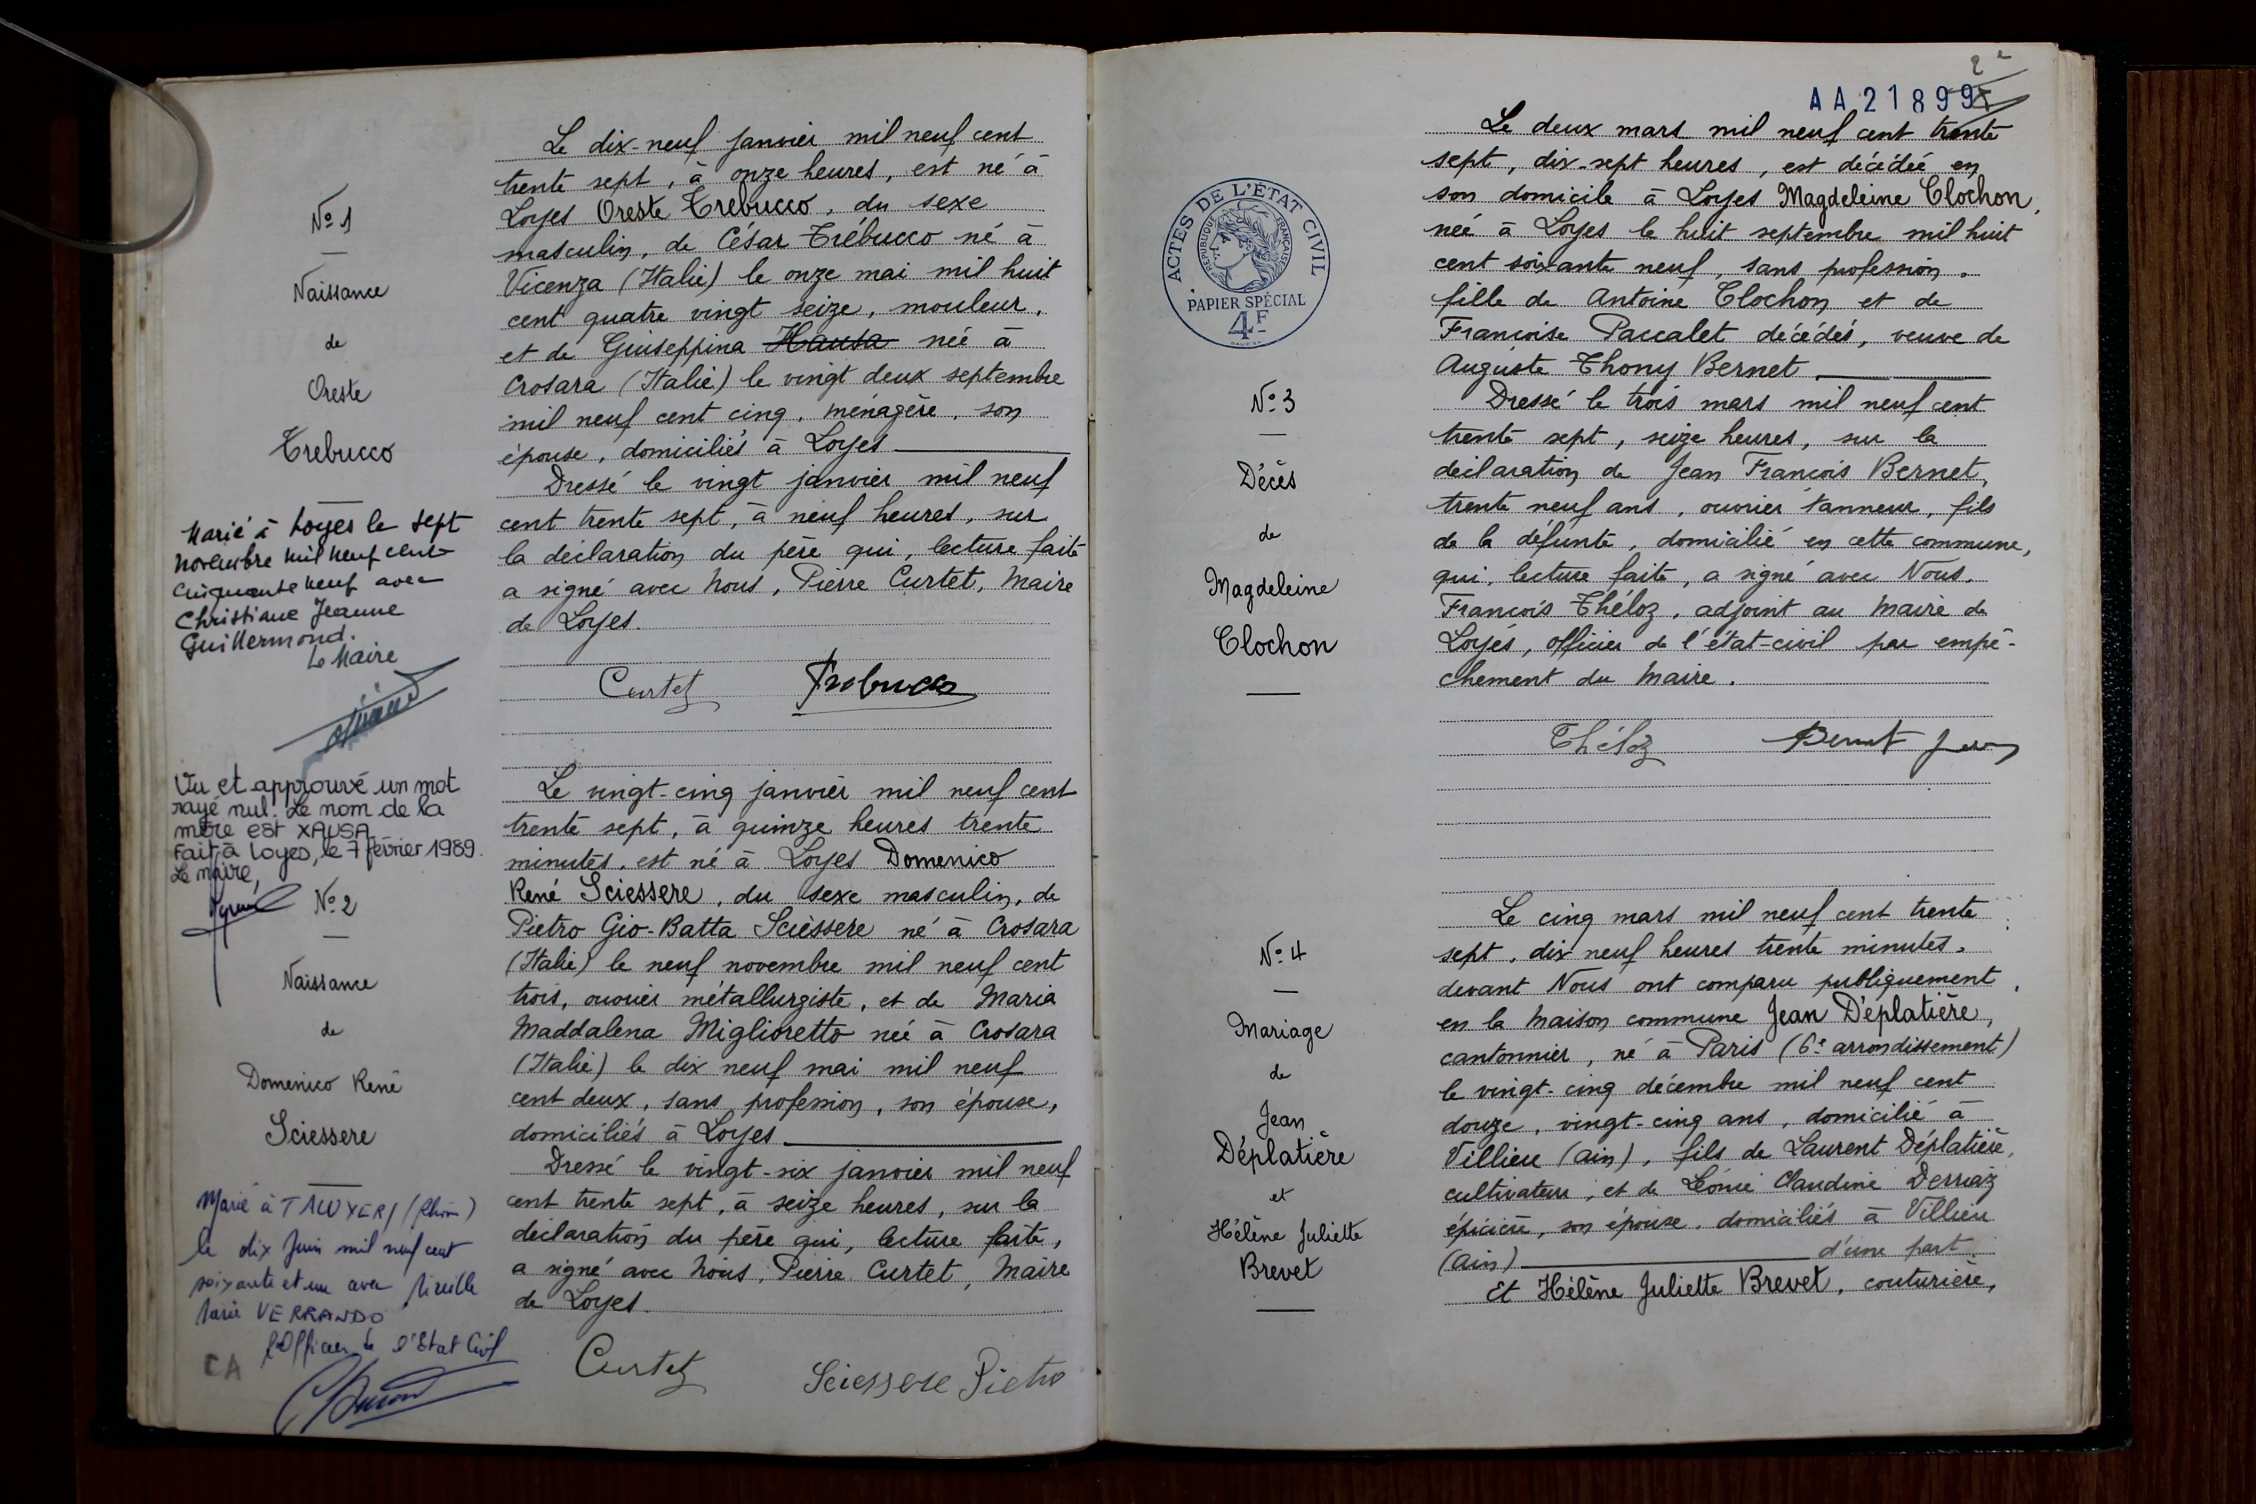 Nº 1
Naissance
de
Oreste
Trebucco
Marié à Loyes le sept
novembre mil neuf cent
cinquante neuf avec
Christiane Jeanne
Guillermond.
Le Maire
Vu et approuvé un mot
rayé nul. Le nom de la
mère est XAUSA
Fait à Loyes, le 7 février 1989.
Le maire,
Le dix-neuf janvier mil neuf cent
trente sept, à onze heures, est né à
Loyes Oreste Trebucco, du sexe
masculin, de César Trébucco né à
Vicenza (Italie) le onze mai mil huit
cent quatre vingt seize, mouleur,
et de Giuseppina Hausa née à
Crosara (Italie) le vingt deux septembre
mil neuf cent cinq, ménagère, son
épouse, domiciliés à Loyes
Dressé le vingt janvier mil neuf
cent trente sept, à neuf heures, sur
la déclaration du père qui, lecture faite
a signé avec Nous, Pierre Curtet, Maire
de Loyes.
Curtet Trebucco
Nº 2
Naissance
de
Domenico René
Sciessere
Marié à TALUYERS (Rhône)
le dix Juin mil neuf cent
soixante et un avec Mireille
Marie VERRANDO
l'Officier de l'Etat Civil
CA
Le vingt-cinq janvier mil neuf cent
trente sept, à quinze heures trente
minutes, est né à Loyes Domenico
René Sciessere, du sexe masculin, de
Pietro Gio-Batta Sciessere né à Crosara
(Italie) le neuf novembre mil neuf cent
trois, ouvrier métallurgiste, et de Maria
Maddalena Miglioretto née à Crosara
(Italie) le dix neuf mai mil neuf
cent deux, sans profession, son épouse,
domiciliés à Loyes
Dressé le vingt-six janvier mil neuf
cent trente sept, à seize heures, sur la
déclaration du père qui, lecture faite,
a signé avec Nous, Pierre Curtet, Maire
de Loyes.
Curtet Sciessere Pietro
2e
AA 21899
ACTES DE L'ÉTAT CIVIL
RÉPUBLIQUE FRANÇAISE
PAPIER SPÉCIAL
4F
Nº 3
Décès
de
Magdeleine
Clochon
Le deux mars mil neuf cent trente
sept, dix-sept heures, est décédée en
son domicile à Loyes Magdeleine Clochon,
née à Loyes le huit septembre mil huit
cent soixante neuf, sans profession,
fille de Antoine Clochon et de
Françoise Paccalet décédés, veuve de
Auguste Thony Bernet
Dressé le trois mars mil neuf cent
trente sept, seize heures, sur la
déclaration de Jean François Bernet,
trente neuf ans, ouvrier tanneur, fils
de la défunte, domicilié en cette commune,
qui, lecture faite, a signé avec Nous,
François Théloz, adjoint au Maire de
Loyes, officier de l'état-civil par empê-
chement du Maire.
Théloz Bernet Jean
Nº 4
Mariage
de
Jean
Déplatière
et
Hélène Juliette
Brevet
Le cinq mars mil neuf cent trente
sept, dix neuf heures trente minutes,
devant Nous ont comparu publiquement
en la maison commune Jean Déplatière,
cantonnier, né à Paris (6e arrondissement)
le vingt-cinq décembre mil neuf cent
douze, vingt-cinq ans, domicilié à
Villieu (Ain), fils de Laurent Déplatière,
cultivateur, et de Léonie Claudine Derriaz
épicière, son épouse, domiciliés à Villieu
(Ain) d'une part.
Et Hélène Juliette Brevet, couturière,